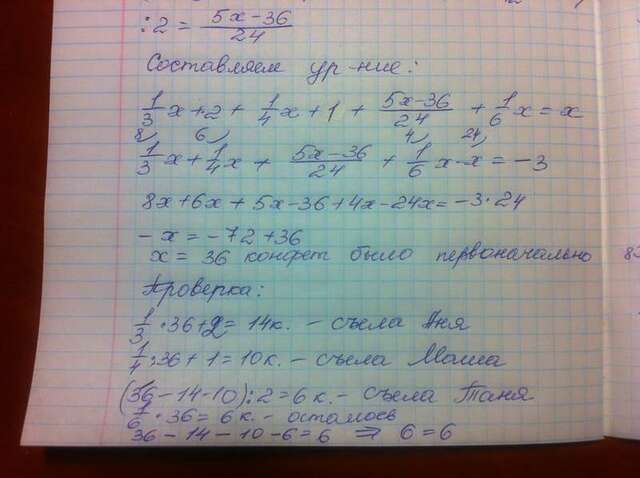 :2 = (5x-36)/24
Составляем ур-ние:
1/3 x+2 + 1/4 x+1 + (5x-36)/24 + 1/6 x = x
8 6 4 24
1/3 x + 1/4 x + (5x-36)/24 + 1/6 x - x = -3
8x+6x+5x-36+4x-24x=-3·24
-x = -72+36
x = 36 конфет было первоначально
Проверка:
1/3 · 36+2 = 14к. - съела Аня
1/4 : 36 + 1 = 10к. - съела Маша
(36-14-10):2=6к. - съела Таня
1/6 · 36 = 6к. - осталось
36-14-10-6=6 ⇒ 6=6